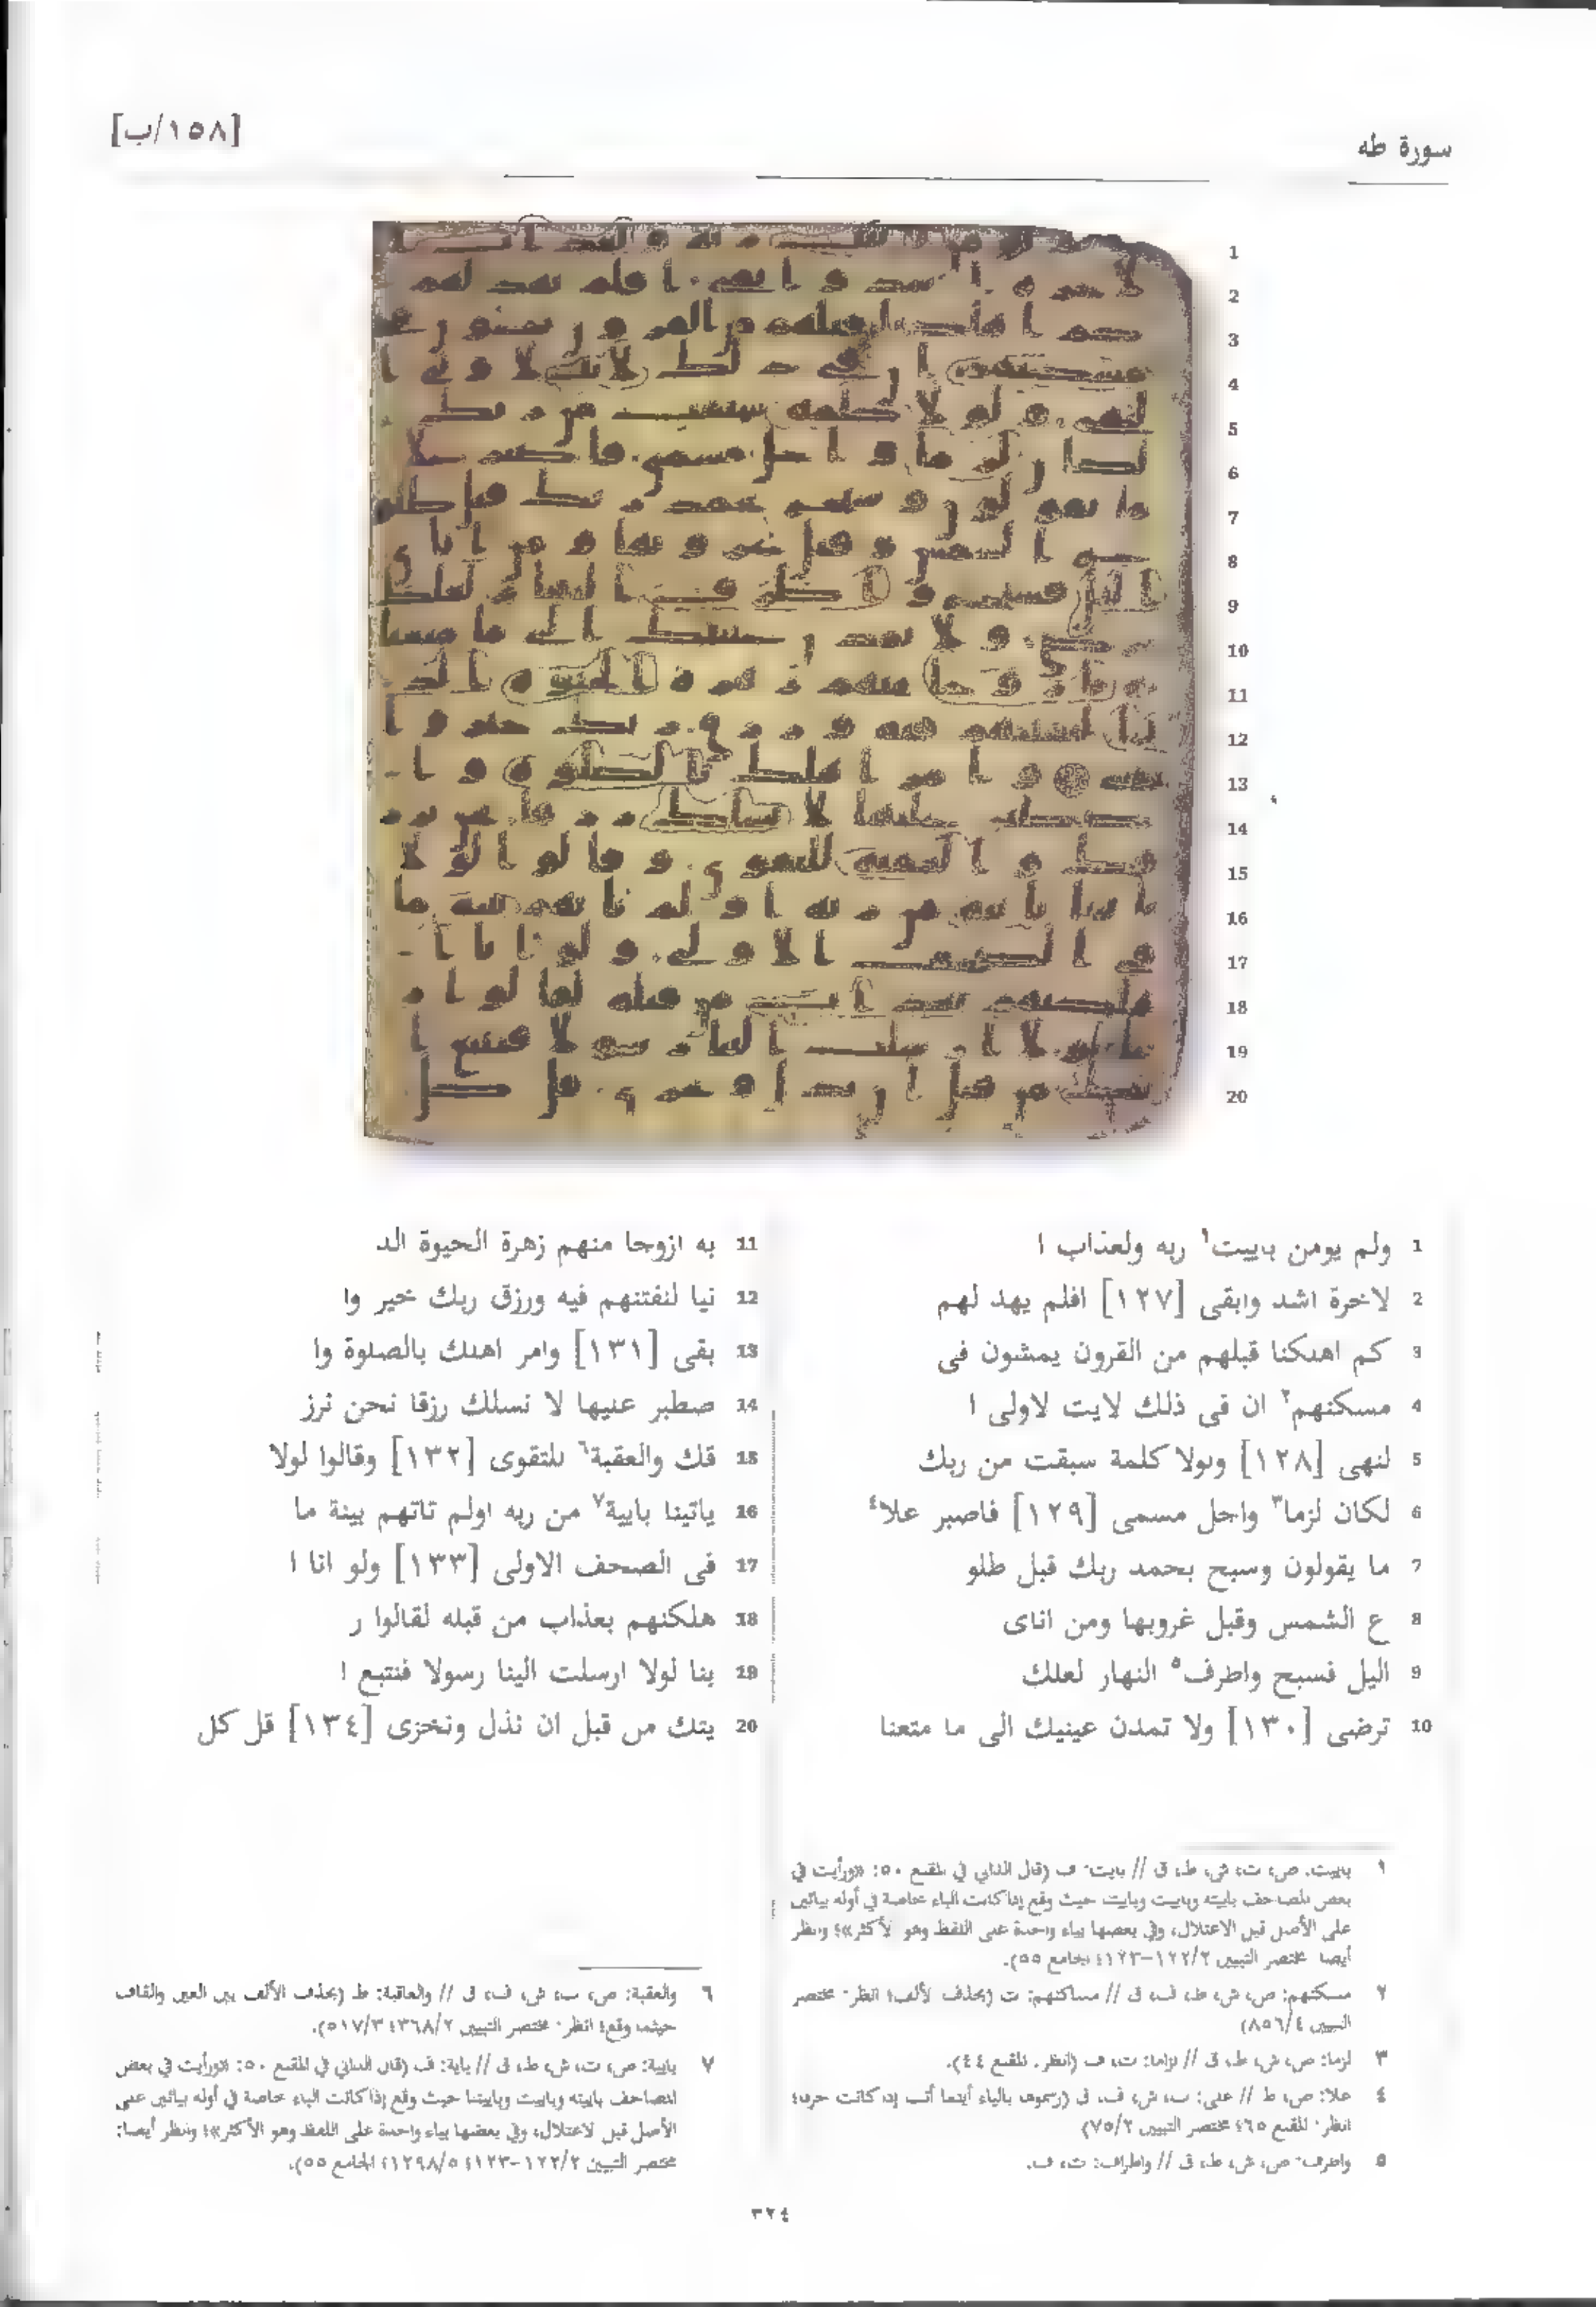 سورة طه
[١٥٨/ب]
1 ولم يومن باييت١ ربه ولعذاب ا
2 لاخرة اشد وابقى [١٢٧] افلم يهد لهم
3 كم اهلكنا قبلهم من القرون يمشون فى
4 مسكنهم٢ ان فى ذلك لايت لاولى ا
5 لنهى [١٢٨] ولولا كلمة سبقت من ربك
6 لكان لزما٣ واجل مسمى [١٢٩] فاصبر علا٤
7 ما يقولون وسبح بحمد ربك قبل طلو
8 ع الشمس وقبل غروبها ومن اناى
9 اليل فسبح واطرف٥ النهار لعلك
10 ترضى [١٣٠] ولا تمدن عينيك الى ما متعنا
11 به ازوجا منهم زهرة الحيوة الد
12 نيا لنفتنهم فيه ورزق ربك خير وا
13 بقى [١٣١] وامر اهلك بالصلوة وا
14 صطبر عليها لا نسلك رزقا نحن نرز
15 قك والعقبة٦ للتقوى [١٣٢] وقالوا لولا
16 ياتينا بايية٧ من ربه اولم تاتهم بينة ما
17 فى الصحف الاولى [١٣٣] ولو انا ا
18 هلكنهم بعذاب من قبله لقالوا ر
19 بنا لولا ارسلت الينا رسولا فنتبع ا
20 يتك من قبل ان نذل ونخزى [١٣٤] قل كل
١ باييت: ص، ت، ش، ط، ق // بايت: ف (قال الداني في المقنع ٥٠: «ورأيت في
بعض المصاحف باييته وباييت وبايت حيث وقع إذا كانت الباء خاصة في أوله بيائين
على الأصل قبل الاعتلال، وفي بعضها بياء واحدة على اللفظ وهو الأكثر»؛ وانظر
أيضا مختصر التبيين ١٢٢/٢-١٢٣؛ الجامع ٥٥).
٢ مسكنهم: ص، ش، ط، ف، ق // مساكنهم: ت (بحذف الألف؛ انظر: مختصر
التبيين ٨٥٦/٤)
٣ لزما: ص، ش، ط، ق // لزاما: ت، ف (انظر: المقنع ٤٤).
٤ علا: ص، ط // على: ت، ش، ف، ق (رسموه بالياء أينما أتت إذا كانت حرف؛
انظر: المقنع ٦٥؛ مختصر التبيين ٧٥/٢)
٥ واطرف: ص، ش، ط، ق // واطراف: ت، ف.
٦ والعقبة: ص، ت، ش، ف، ق // والعاقبة: ط (بحذف الألف بين العين والقاف
حيثما وقع؛ انظر: مختصر التبيين ٣٦٨/٢؛ ٥١٧/٣).
٧ بايية: ص، ت، ش، ط، ق // باية: ف (قال الداني في المقنع ٥٠: «ورأيت في بعض
المصاحف باييته وباييت وباييتنا حيث وقع إذا كانت الباء خاصة في أوله بيائين على
الأصل قبل الاعتلال، وفي بعضها بياء واحدة على اللفظ وهو الأكثر»؛ وانظر أيضا:
مختصر التبيين ١٢٢/٢-١٢٣؛ ١٢٩٨/٥؛ الجامع ٥٥).
٣٢٤